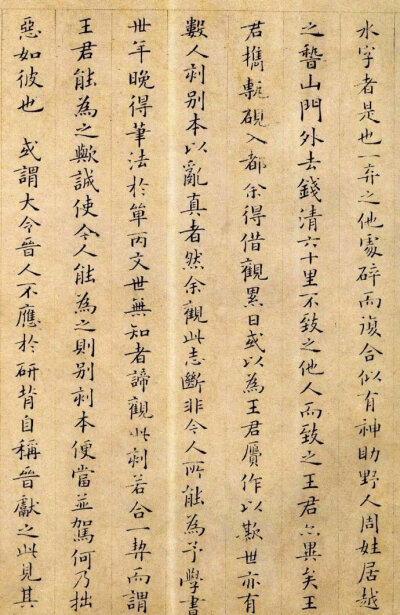 水字者是也一弃之他處碎而復合似有神助野人周姓居越
之稽山門外去錢清六十里不致之他人而致之王君六異矣王
君携甎硯入都余得借觀累日或以為王君贋作以欺世亦有
數人刻别本以亂真者然余觀此志斷非今人所能為予學書
卅年晚得筆法於單丙文世無知者諦觀此刻若合一契而謂
王君能為之歟誠使今人能為之則别刻本便當並駕何乃拙
惡如彼也　或謂大令晉人不應於研背自稱晉獻之此見其